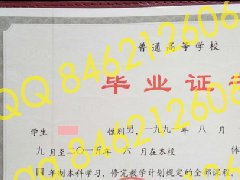 普通高等学校
毕业证书
学生 性别男，一九九一年 八 月
九月至二〇一五年 六 月在本校
年制本科学习，修完教学计划规定的全部课程，
QQ 846212606
QQ 846212606